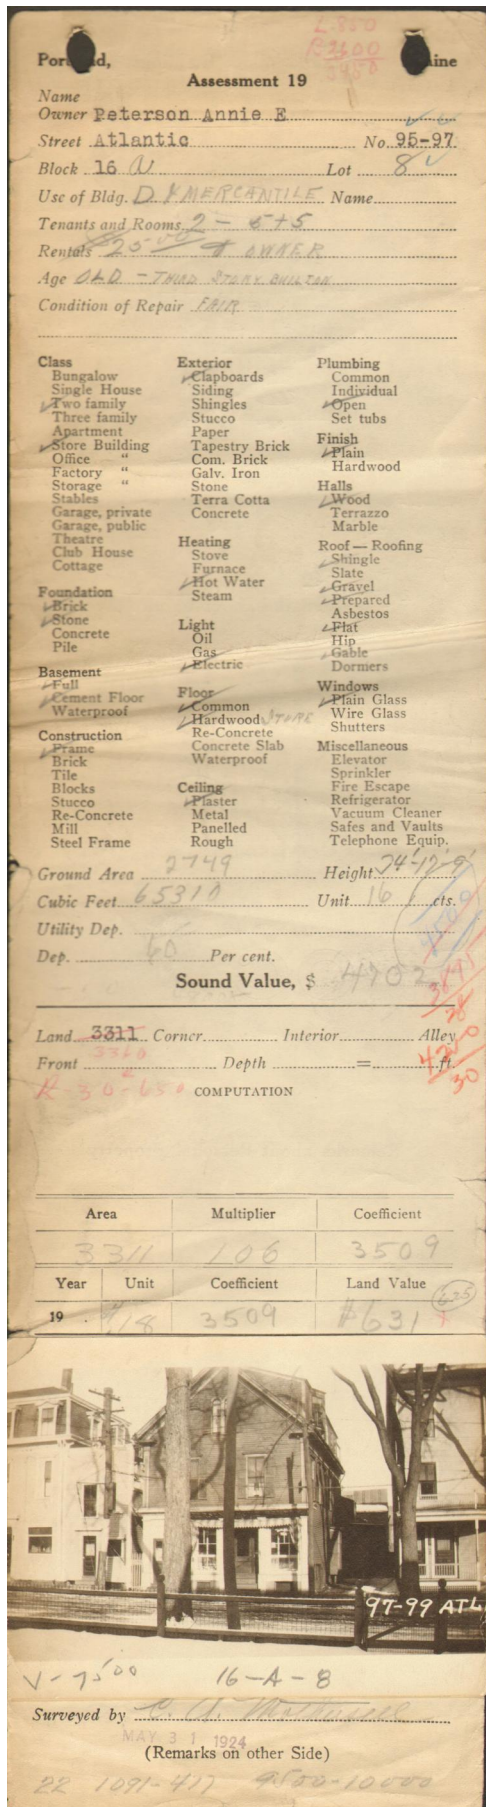 L-850
R 2600
3450
Portland, Maine
Assessment 19
Name
Owner Peterson Annie E
Street Atlantic No. 95-97
Block 16 N Lot 8
Use of Bldg. D & MERCANTILE Name
Tenants and Rooms 2 - 5+5
Rentals 25.00 + OWNER
Age OLD - THIRD STORY BUILT ON
Condition of Repair FAIR
Class
Bungalow
Single House
✓Two family
Three family
Apartment
✓Store Building
Office "
Factory "
Storage "
Stables
Garage, private
Garage, public
Theatre
Club House
Cottage
Foundation
✓Brick
✓Stone
Concrete
Pile
Basement
✓Full
✓Cement Floor
Waterproof
Construction
✓Frame
Brick
Tile
Blocks
Stucco
Re-Concrete
Mill
Steel Frame
Exterior
✓Clapboards
Siding
Shingles
Stucco
Paper
Tapestry Brick
Com. Brick
Galv. Iron
Stone
Terra Cotta
Concrete
Heating
Stove
Furnace
✓Hot Water
Steam
Light
Oil
Gas
✓Electric
Floor
✓Common
✓Hardwood STORE
Re-Concrete
Concrete Slab
Waterproof
Ceiling
✓Plaster
Metal
Panelled
Rough
Plumbing
Common
Individual
✓Open
Set tubs
Finish
✓Plain
Hardwood
Halls
✓Wood
Terrazzo
Marble
Roof — Roofing
✓Shingle
Slate
✓Gravel
✓Prepared
Asbestos
✓Flat
Hip
✓Gable
Dormers
Windows
✓Plain Glass
Wire Glass
Shutters
Miscellaneous
Elevator
Sprinkler
Fire Escape
Refrigerator
Vacuum Cleaner
Safes and Vaults
Telephone Equip.
Ground Area 2749 Height 24'-12'-9'
Cubic Feet 65310 Unit 16 cts.
Utility Dep.
Dep. 60 Per cent.
Sound Value, $ 4702
Land 3311 Corner Interior Alley
3360
Front Depth = ft.
4200
30
R-30-650
COMPUTATION
Area Multiplier Coefficient
3311 106 3509
Year Unit Coefficient Land Value
625
19 $18 3509 $631
97-99 ATL
V-7500 16-A-8
Surveyed by
MAY 31 1924
(Remarks on other Side)
22 1091-417 9500-10000